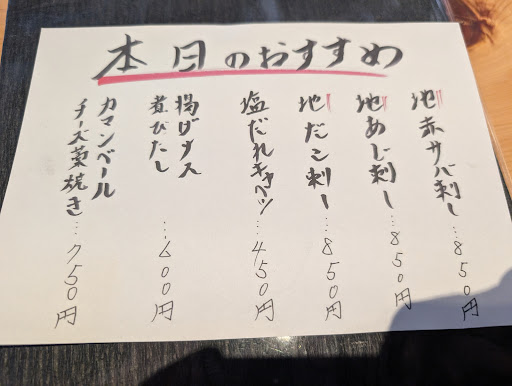 本日のおすすめ
地赤サバ刺し…850円
地あじ刺し…850円
地だこ刺し…850円
塩だれキャベツ…450円
揚げナス
煮びたし…600円
カマンベール
チーズ藁焼き…750円